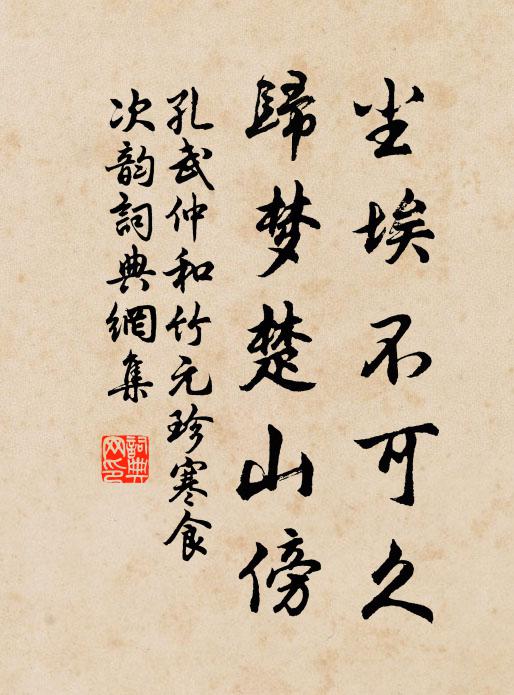 尘埃不可久
歸梦楚山傍
孔武仲和竹元珍寒食
次韵詞典網集
詞典网印